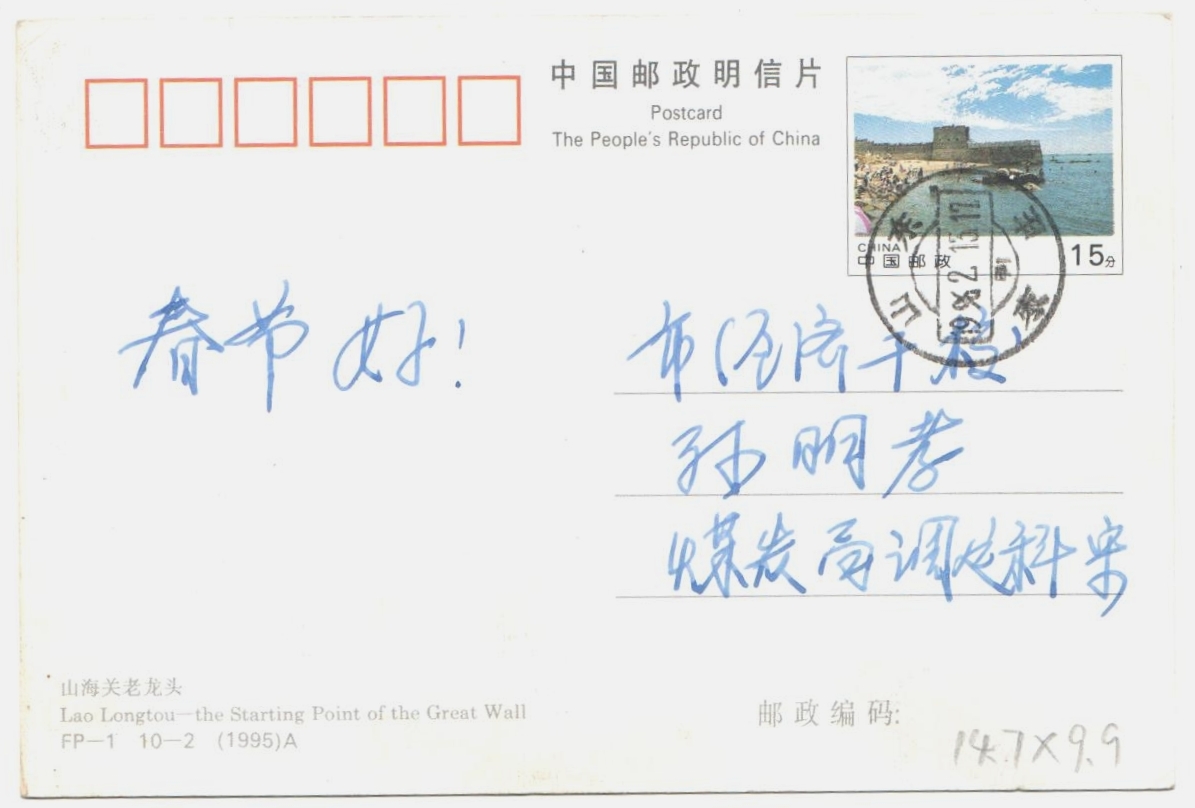 中国邮政明信片
Postcard
The People's Republic of China
CHINA
中国邮政
15分
山东
莱芜
春节好!
市经济干校
孙明孝
煤炭局调运科宋
山海关老龙头
Lao Longtou—the Starting Point of the Great Wall
FP—1 10—2 (1995)A
邮政编码:
14.7×9.9